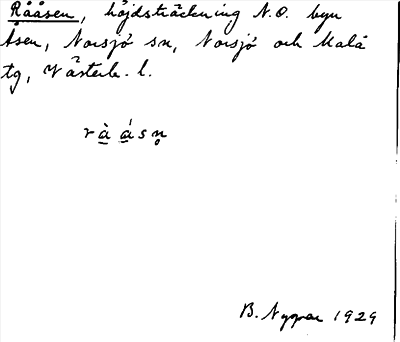 Rååsen, höjdsträckning N.O. byn
Åsen, Norsjö sn, Norsjö och Malå
tg, Västerb. l.
r à̱ á̱ s n̥
B. Nyman 1929